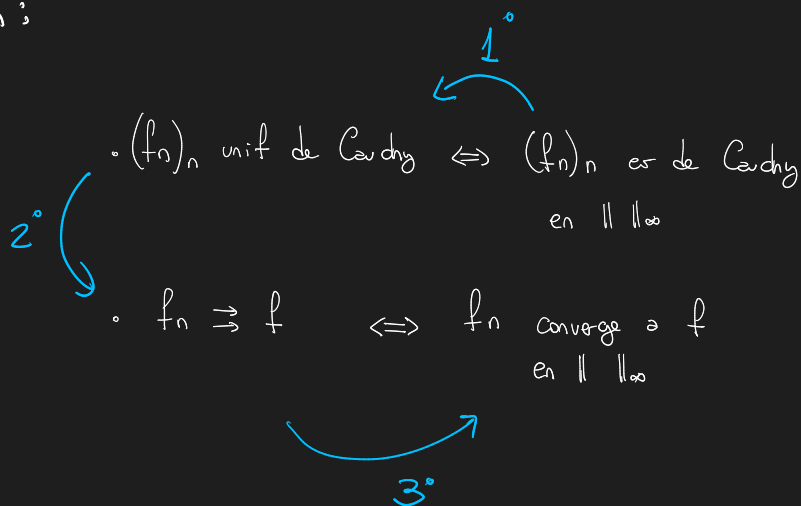 1°
. (fn)n unif de Cauchy ⇔ (fn)n es de Cauchy
en || ||∞
2°
. fn ⇉ f ⇔ fn converge a f
en || ||∞
3°